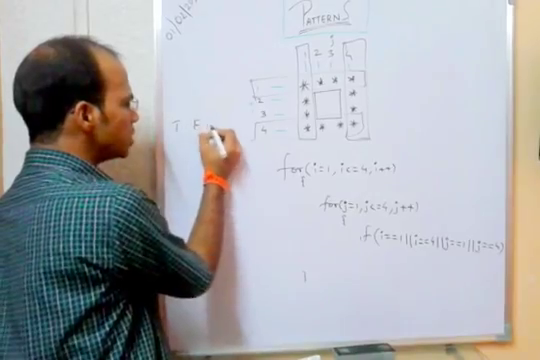 01/02/20
PATTERNS
j
1 2 3 4
1
* * * *
2
* *
3
* *
4
* * * *
T F
for(i=1, i<=4, i++)
{
for(j=1, j<=4, j++)
{
if(i==1||i==4||j==1||j==4)